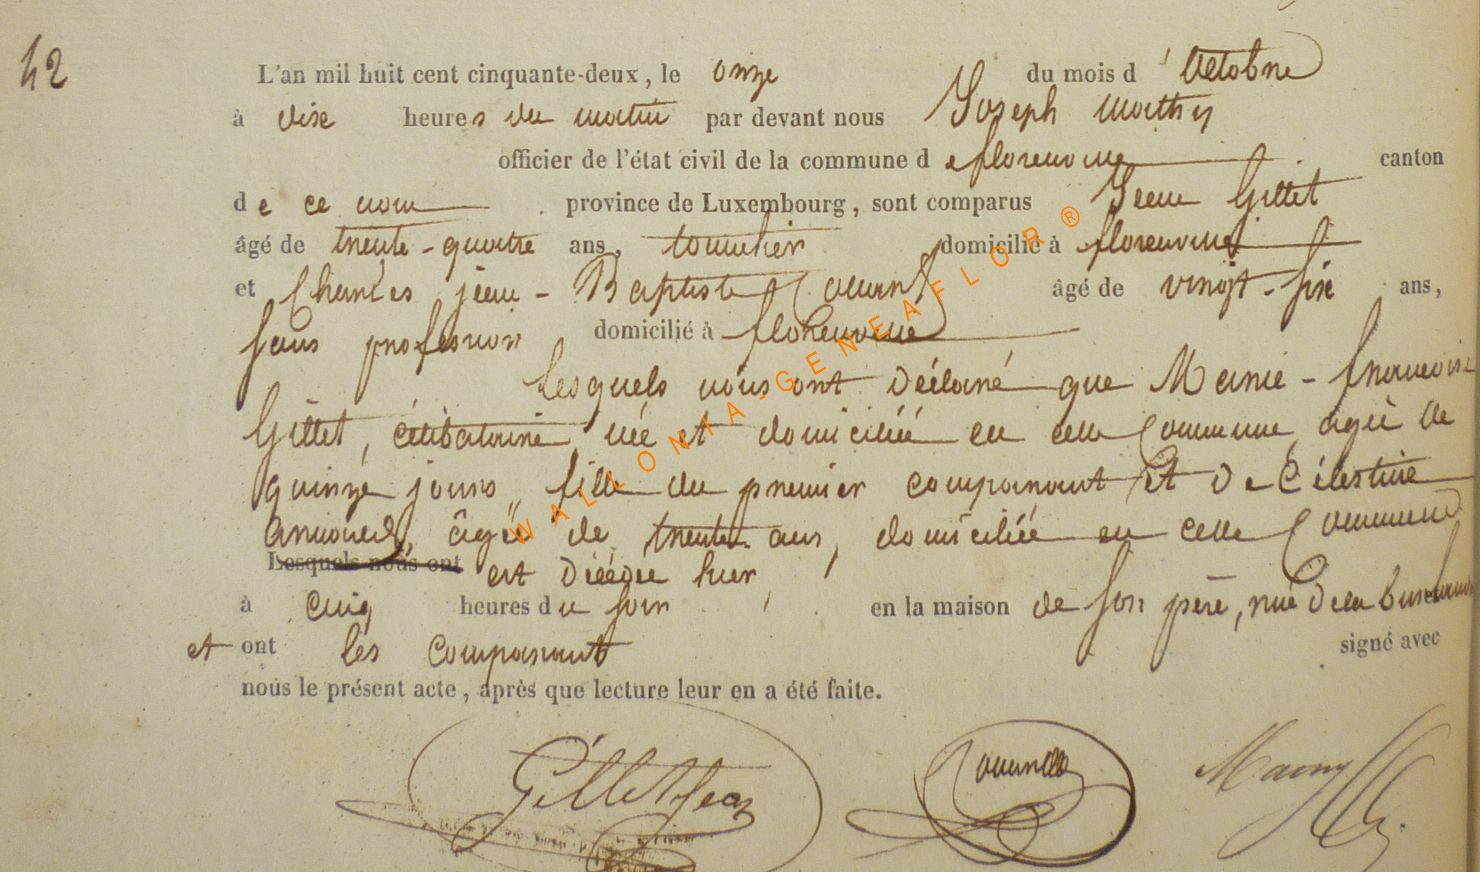 42
L'an mil huit cent cinquante-deux, le onze du mois d'Octobre
à dix heures du matin par devant nous Joseph Mathey
officier de l'état civil de la commune de florenville canton
de ce nom province de Luxembourg, sont comparus Jean Gillet
âgé de trente-quatre ans, domicilié à florenville
et Charles jean-Baptiste âgé de vingt-six ans,
sans profession domicilié à florenville
Lesquels nous ont déclaré que Marie-francoise
Gillet, célibataire née et domiciliée en cette Commune, agée de
quinze jours, fille du premier comparant et de Célestine
âgée de trente ans, domiciliée en cette Commune
Lesquels nous ont est décédée hier,
à cinq heures du soir en la maison de son père, rue de la
et ont les comparants signé avec
nous le présent acte, après que lecture leur en a été faite.
Gillet Jean
WALLONIA-GENEAFLOR®